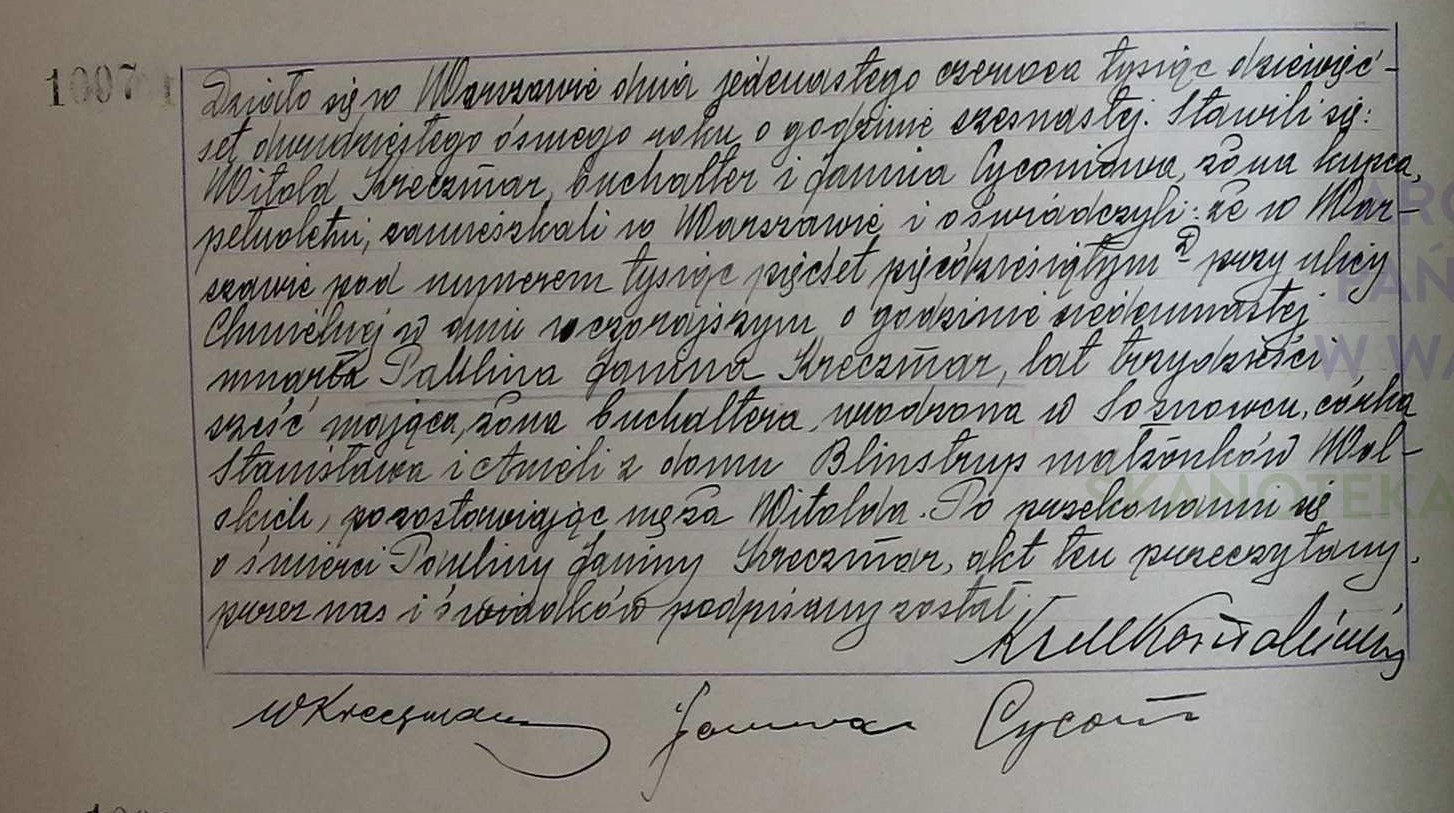 1007
Działo się w Warszawie dnia jedenastego czerwca tysiąc dziewięć-
set dwudziestego ósmego roku o godzinie szesnastej. Stawili się:
Witold Kreczmar, buchalter i Janina Cyconiowa, żona kupca,
pełnoletni, zamieszkali w Warszawie i oświadczyli: że w War-
szawie pod numerem tysiąc pięćset pięćdziesiątym D przy ulicy
Chmielnej w dniu wczorajszym o godzinie siedemnastej
umarła Paulina Janina Kreczmar, lat trzydzieści
sześć mająca, żona buchaltera, urodzona w Sosnowcu, córka
Stanisława i Anieli z domu Blinstrup małżonków Wol-
skich, pozostawiając męża Witolda. Po przekonaniu się
o śmierci Pauliny Janiny Kreczmar, akt ten przeczytany,
przez nas i świadków podpisany został.
WKreczmar Janina Cycoń
SKANOTEKA